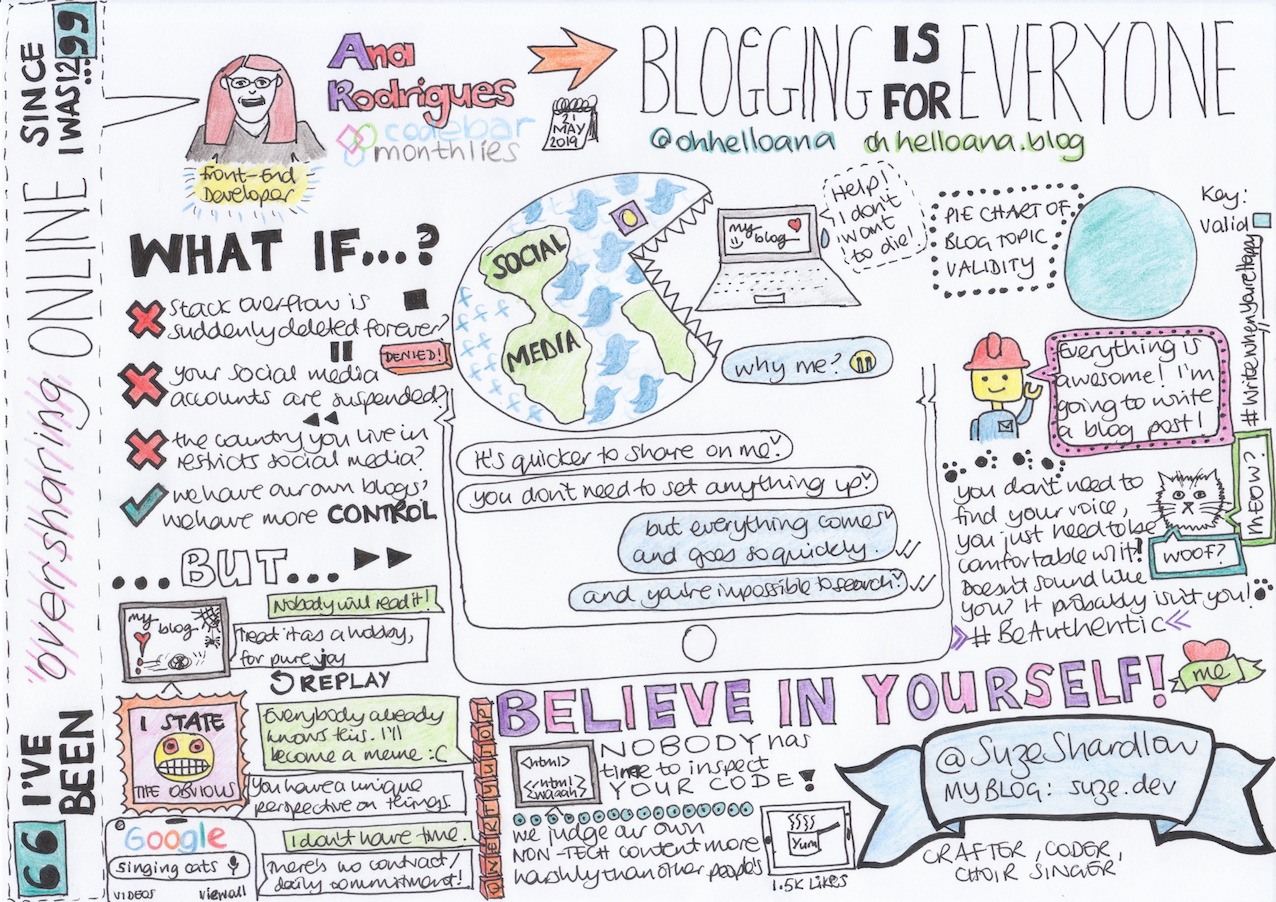 66 I'VE BEEN
"oversharing" ONLINE
SINCE I WAS 12... 99
Ana
Rodrigues
codebar
monthlies
21
MAY
2019
Front-End
Developer
BLOGGING IS FOR EVERYONE
@ohhelloana ohhelloana.blog
WHAT IF...?
Stack overflow is
suddenly deleted forever?
DENIED!
your social media
accounts are suspended?
the country you live in
restricts social media?
we have our own blogs?
we have more CONTROL
...BUT...
my
blog
Nobody will read it!
Treat it as a hobby,
for pure joy
REPLAY
I STATE
THE OBVIOUS
Everybody already
knows this. I'll
become a meme :C
You have a unique
perspective on things
Google
singing cats
VIDEOS View all
I don't have time.
There's no contract/
daily commitment!
SOCIAL
MEDIA
my
blog
Help!
I don't
want
to die!
why me?
It's quicker to share on me!
you don't need to set anything up!
but everything comes
and goes so quickly.
and you're impossible to search!
PIE CHART OF
BLOG TOPIC
VALIDITY
Key:
Valid
#WriteWhenYou'reHappy
Everything is
awesome! I'm
going to write
a blog post!
you don't need to
find your voice,
you just need to be
comfortable w/ it!
Doesn't sound like
you? It probably isn't you!
#BeAuthentic
MEOW?
WOOF?
BELIEVE IN YOURSELF!
me
<html>
<html>
waaah>
NOBODY has
time to inspect
YOUR CODE!
we judge our own
NON-TECH content more
harshly than other people's
Yum!
1.5K Likes
@SuzeShardlow
MY BLOG: suze.dev
CRAFTER, CODER,
CHOIR SINGER